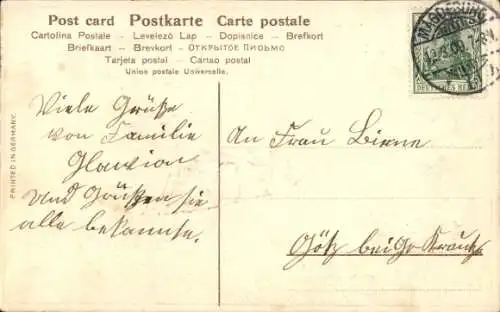 Post card Postkarte Carte postale
Cartolina Postale - Levelező Lap - Dopisnice - Brefkort
Briefkaart - Brevkort - ОТКРЫТОЕ ПИСЬМО
Tarjeta postal - Cartao postal
Union postale Universelle.
PRINTED IN GERMANY.
MAGDEBURG
DEUTSCHES REICH
Viele Grüße
von Familie
Glawion
und Grüßen sie
alle bekannte.
An Frau Birne
Götz bei Gr. Kreutz